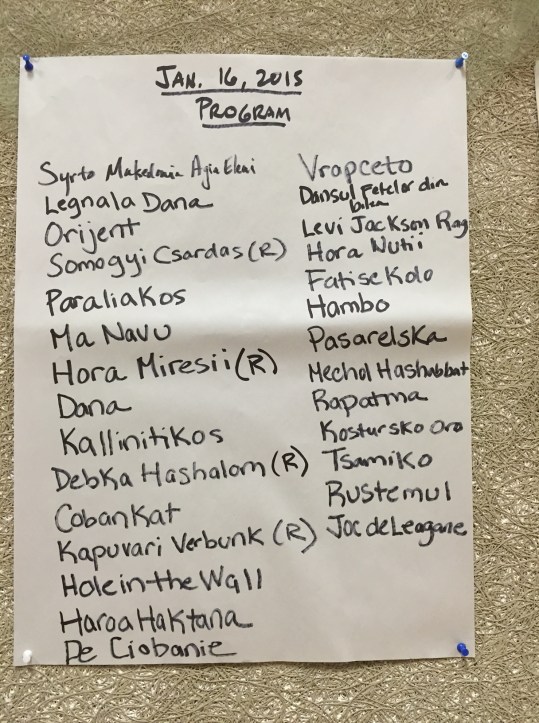 JAN. 16, 2015
PROGRAM
Syrto Makedonia Agia Eleni
Legnala Dana
Orijent
Somogyi Csardas (R)
Paraliakos
Ma Navu
Hora Miresii (R)
Dana
Kallinitikos
Debka Hashalom (R)
Cobankat
Kapuvari Verbunk (R)
Hole in the Wall
Haroa Haktana
De Ciobanie
Vropceto
Dansul Fetelor din
Levi Jackson Rag
Hora Nutii
Fatise Kolo
Hambo
Pasarelska
Mechol Hashabbat
Rapatma
Kostursko Oro
Tsamiko
Rustemul
Joc de Leagane